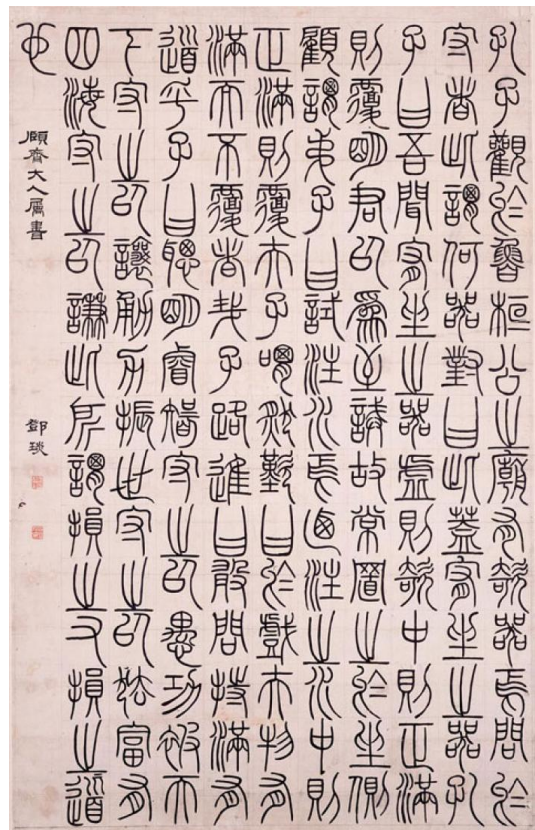 孔子觀於魯桓公之廟有欹器焉問於
守者此謂何器對曰此蓋宥坐之器孔
子曰吾聞宥坐之器虛則欹中則正滿
則覆明君以為至誡故常置之於坐側
顧謂弟子曰試注水焉乃注之水中則
正滿則覆夫子喟然歎曰於戲夫物有
滿而不覆者哉子路進曰敢問持滿有
道乎子曰聰明睿智守之以愚功被天
下守之以讓勇力振世守之以怯富有
四海守之以謙此所謂損之又損之道
也
齊大人屬書
鄧琰